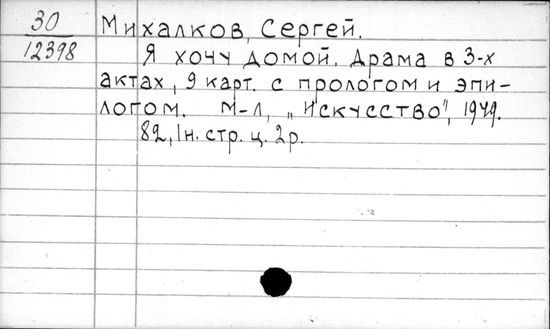 30
12398
Михалков, Сергей.
Я хочу домой. Драма в 3-х
актах, 9 карт. с прологом и эпи-
логом. М-Л, „Искусство", 1949.
82, 1н. стр. ц. 2р.